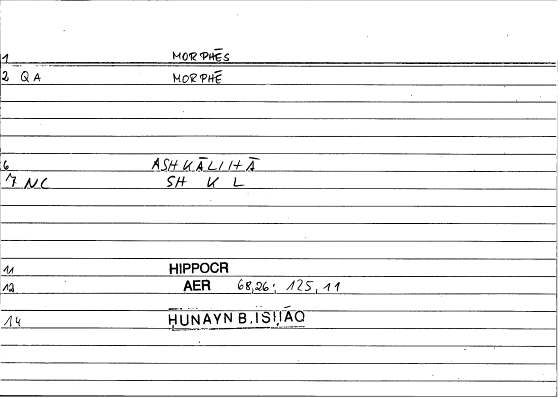 1 MORPHĒS
2 QA MORPHĒ
6 ASHKĀLIHĀ
7 NC SH K L
11 HIPPOCR
12 AER 68,26; 125,11
14 ḤUNAYN B.ISḤĀQ